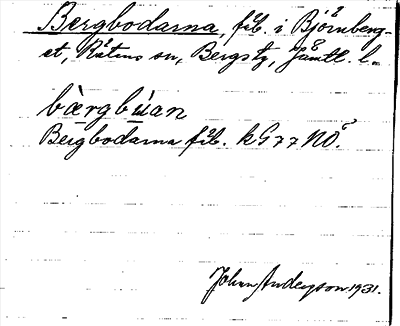 Bergbodarna, fäb. i Björnberg-
et, Rätans sn, Bergs tg, Jämtl. l.
bàrgbu̇an
Bergbodarna fäb. kG77NÖ.
Johan Andersson 1931.